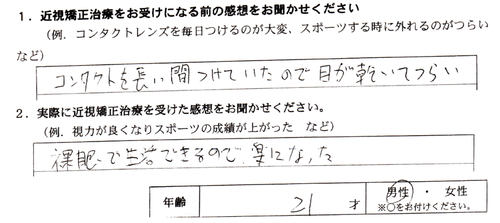 1．近視矯正治療をお受けになる前の感想をお聞かせください
（例．コンタクトレンズを毎日つけるのが大変、スポーツする時に外れるのがつらい
など）
コンタクトを長い間つけていたので目が乾いてつらい
2．実際に近視矯正治療を受けた感想をお聞かせください。
（例．視力が良くなりスポーツの成績が上がった　など）
裸眼で生活できるので、楽になった
年齢　21　才　男性　・　女性
※〇をお付けください。